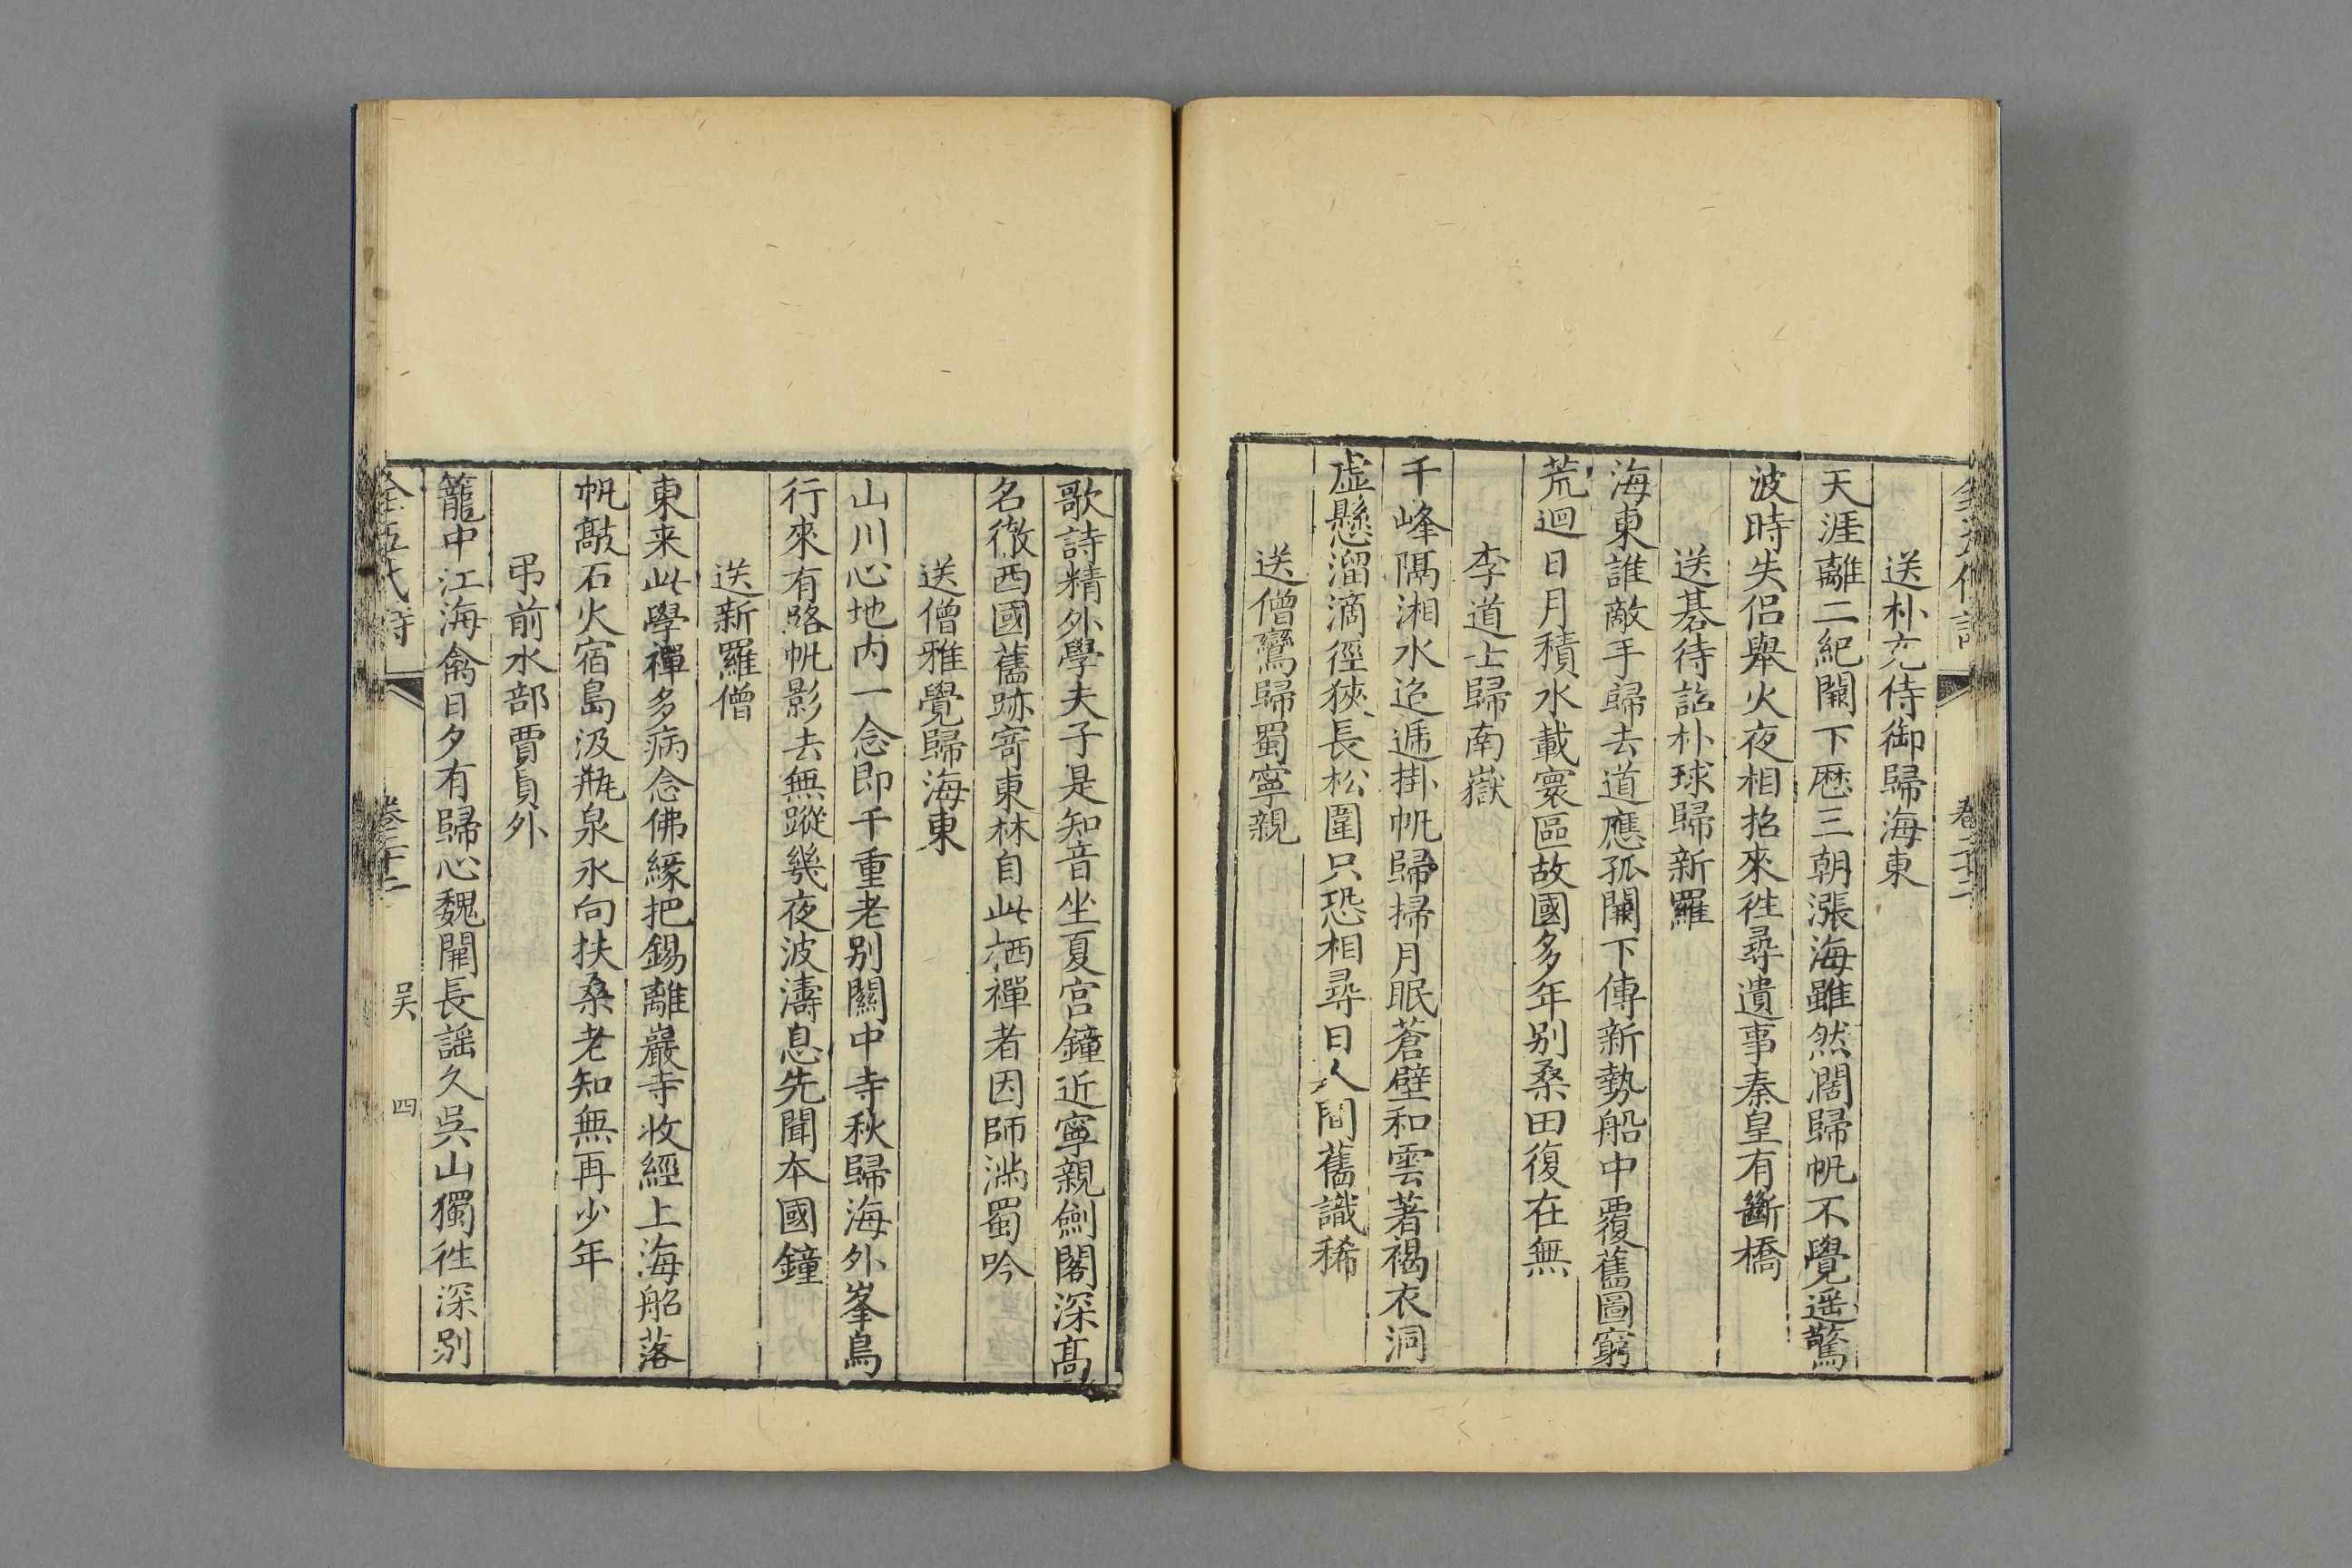 送朴充侍御歸海東
天涯離二紀闕下歴三朝漲海雖然闊歸帆不覺遥驚
波時失侣舉火夜相招來徃尋遺事秦皇有斷橋
送棊待詔朴球歸新羅
海東誰敵手歸去道應孤闕下傳新勢船中覆舊圖窮
荒迴日月積水載寰區故國多年别桑田復在無
李道士歸南嶽
千峰隔湘水迢遞掛帆歸掃月眠蒼壁和雲著褐衣洞
虛懸溜滴徑狹長松圍只恐相尋日人間舊識稀
送僧鸞歸蜀寧親
歌詩精外學夫子是知音坐夏宫鐘近寧親劍閣深髙
名徹西國舊跡寄東林自此栖禪者因師滿蜀吟
送僧雅覺歸海東
山川心地内一念即千重老别關中寺秋歸海外峯鳥
行來有路帆影去無蹤幾夜波濤息先聞本國鐘
送新羅僧
東来此學禪多病念佛緣把錫離巖寺收經上海船落
帆敲石火宿島汲瓶泉永向扶桑老知無再少年
弔前水部賈員外
籠中江海禽日夕有歸心魏闕長謡久吳山獨徃深别
全五代詩 卷三十二 吴 四